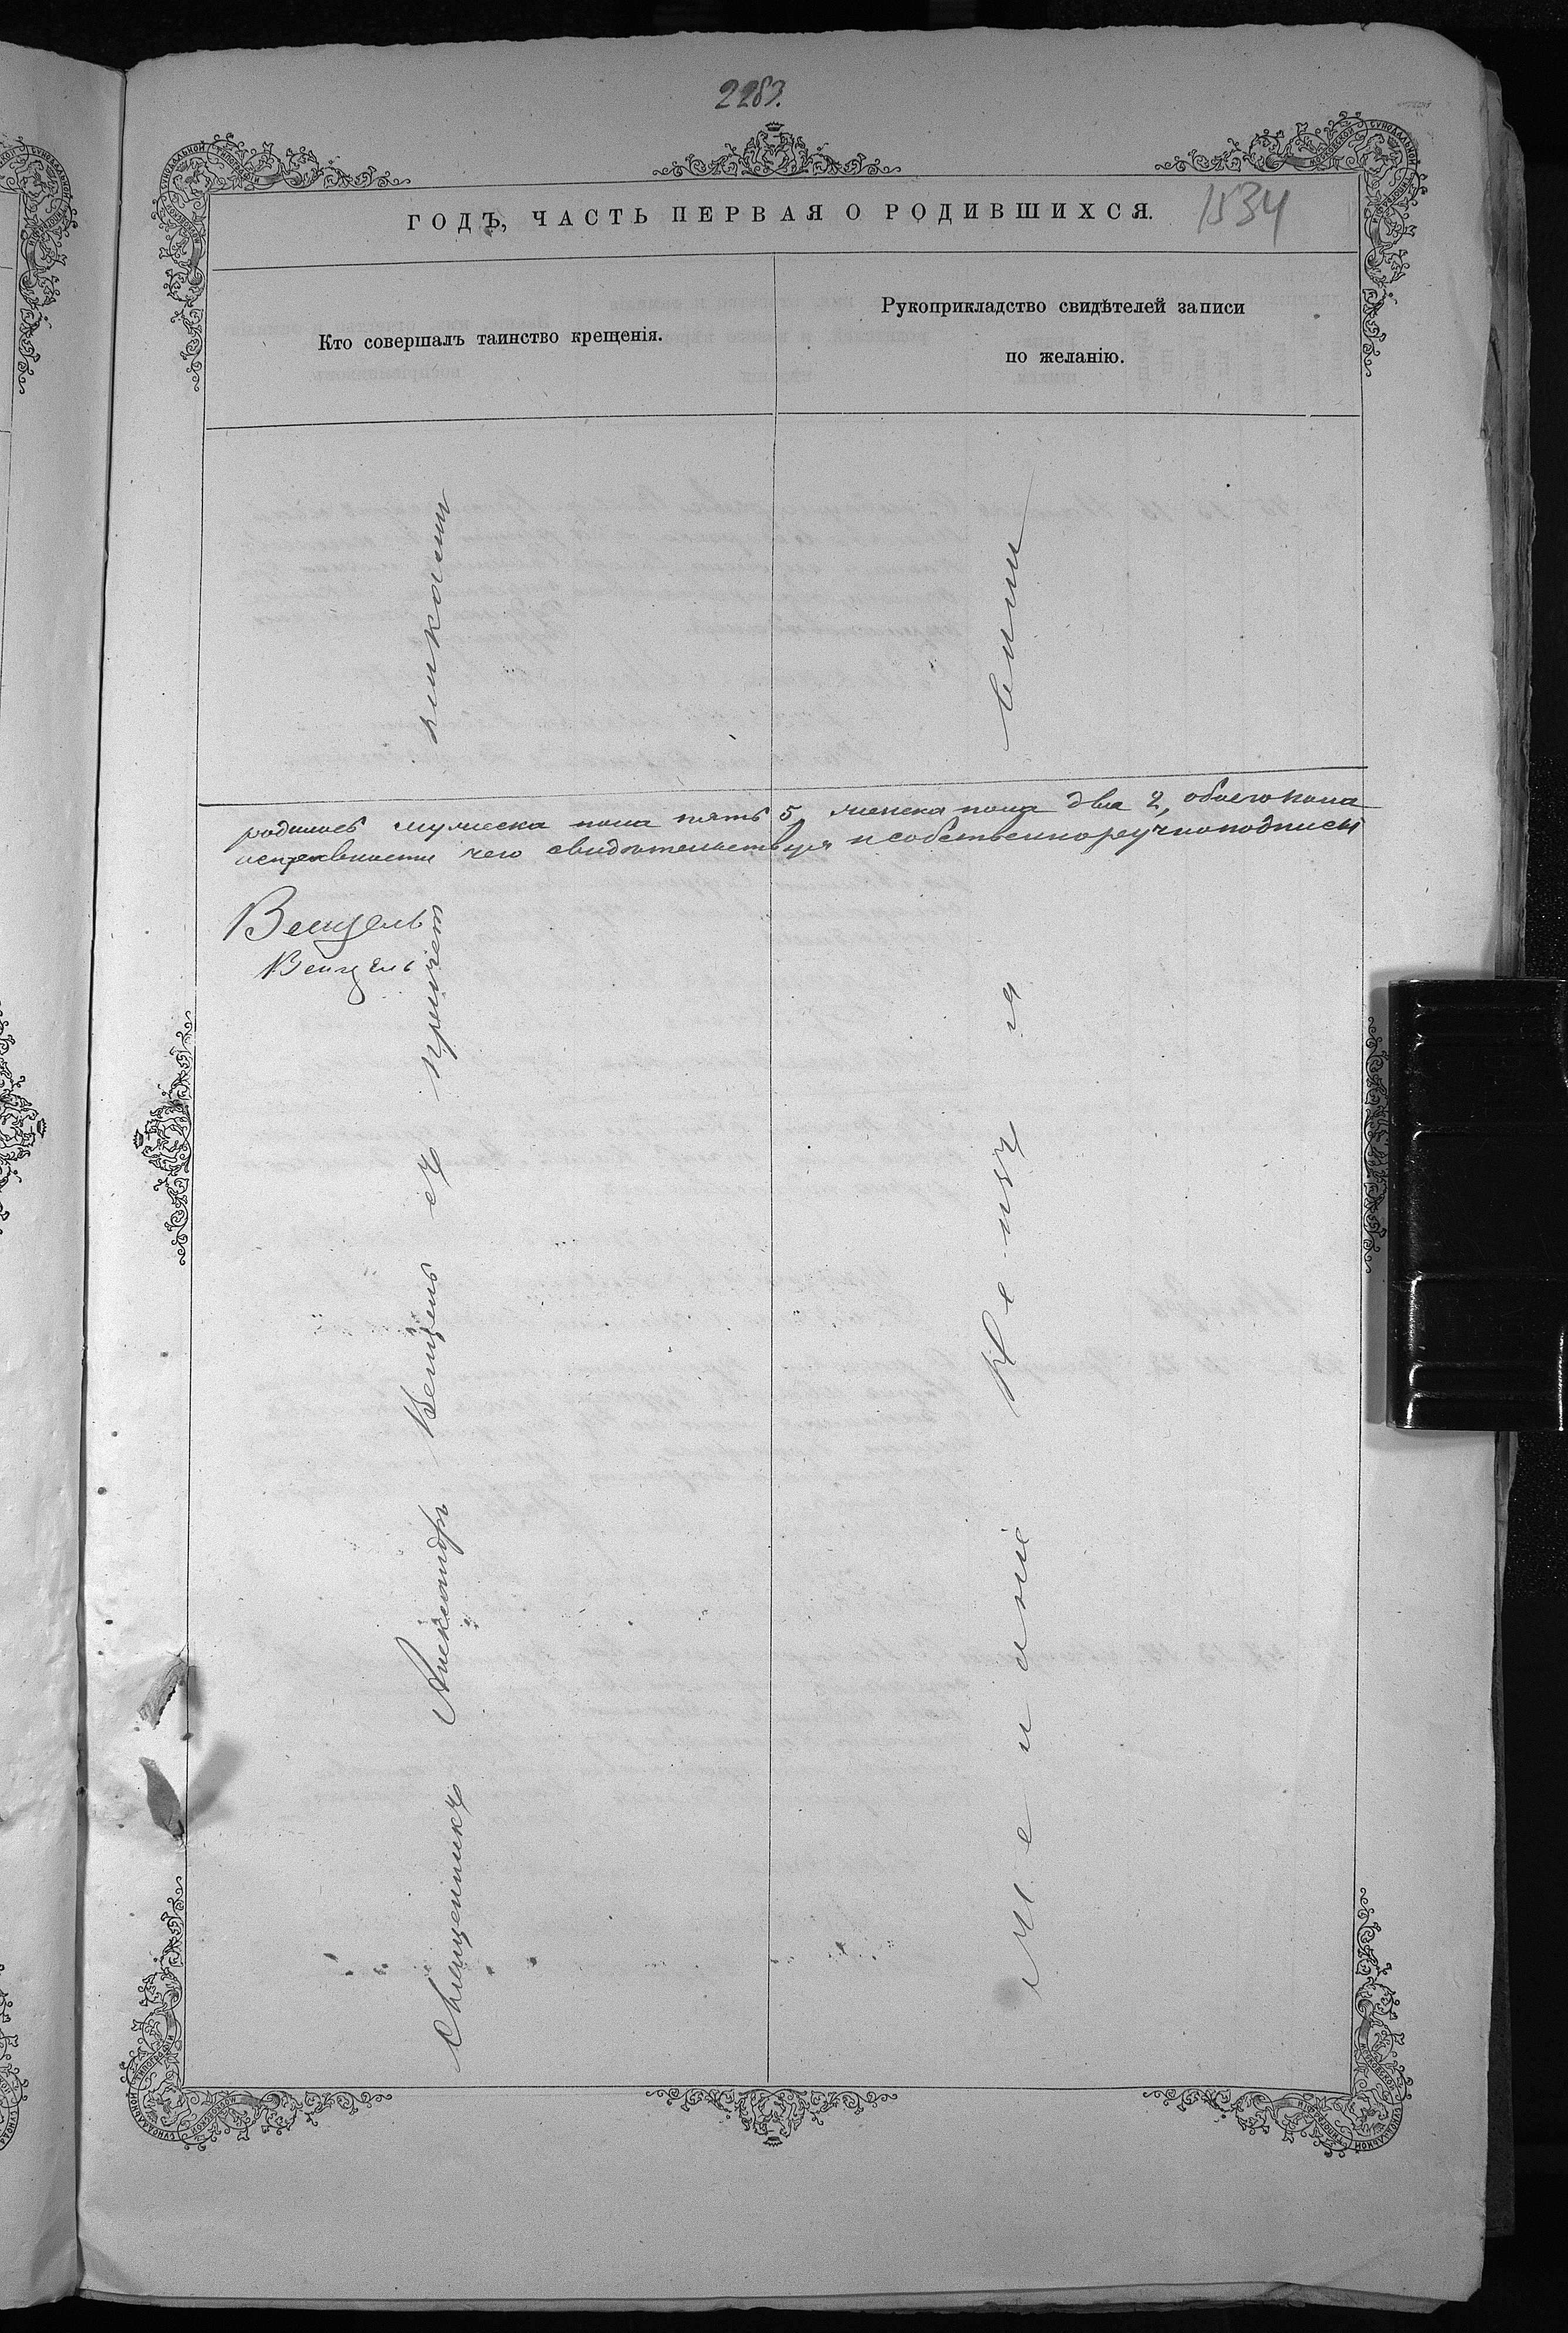 2283.
1534
ГОДЪ, ЧАСТЬ ПЕРВАЯ О РОДИВШИХСЯ.
Кто совершалъ таинство крещенія.
Рукоприкладство свидѣтелей записи
по желанію.
никами
сими
родилось мужеска пола пять 5, женска пола два 2, обоего пола
исправности чего свидѣтельствуя и собственноручно подписи
Венцель
Венцель
Священникъ Александръ Венцель съ причет